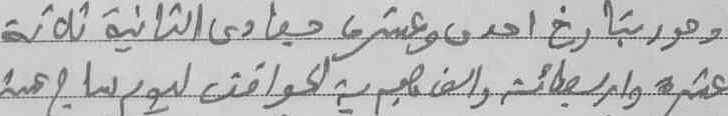 وحرر بتاريخ احدى وعشرين جمادى الثانية ثلاثة
عشر واربعمائة والف هجرية الموافق ليوم سابع عشر